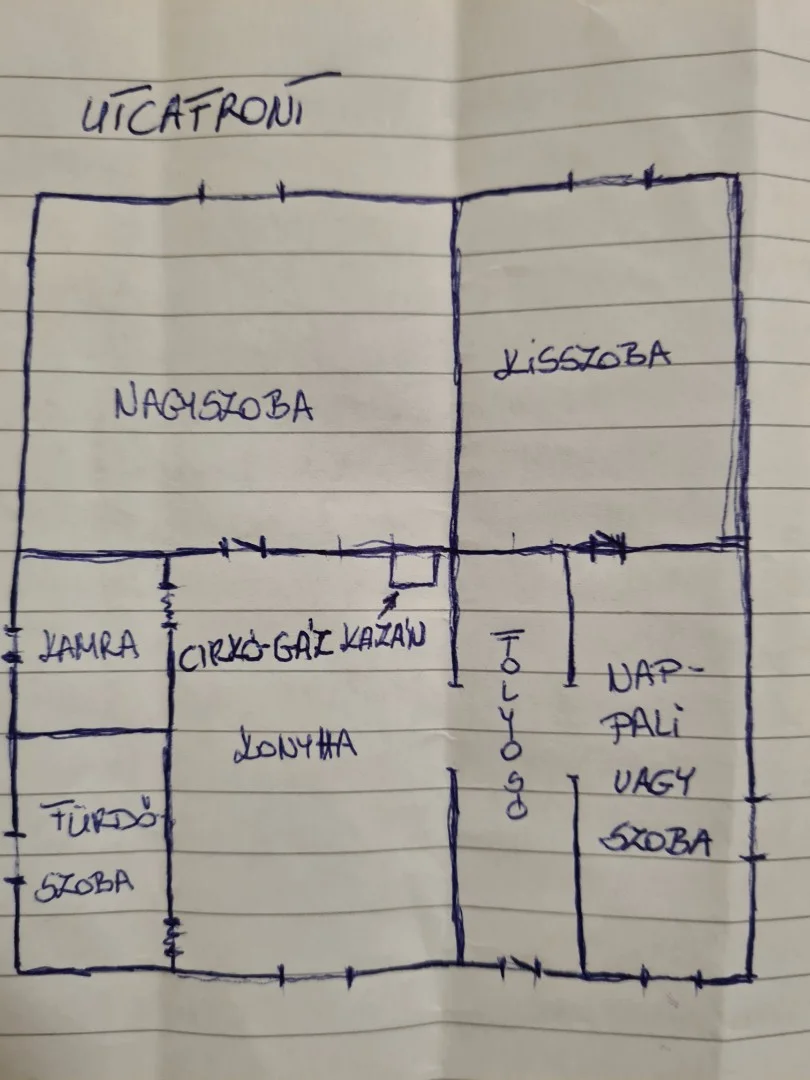 UTCAFRONT
KISSZOBA
NAGYSZOBA
KAMRA
CIRKÓ-GÁZ KAZÁN
FOLYOSÓ
NAP-
PALI
VAGY
SZOBA
KONYHA
FÜRDŐ-
SZOBA